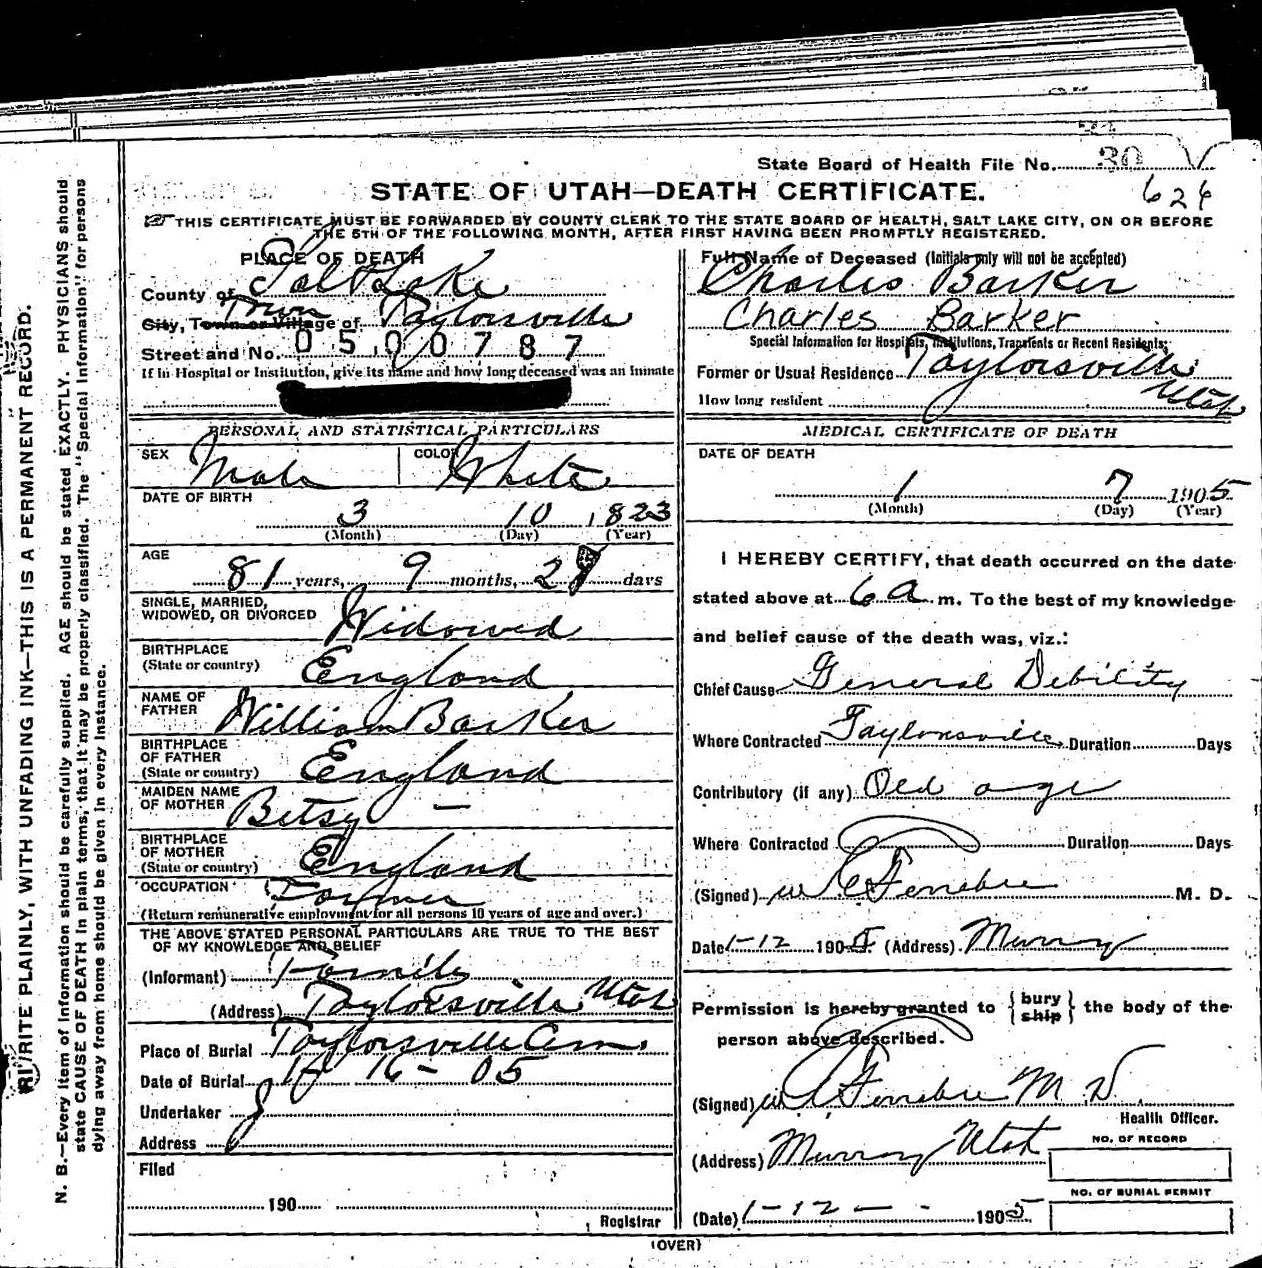 State Board of Health File No. 30
STATE OF UTAH—DEATH CERTIFICATE.
626
THIS CERTIFICATE MUST BE FORWARDED BY COUNTY CLERK TO THE STATE BOARD OF HEALTH, SALT LAKE CITY, ON OR BEFORE
THE 5TH OF THE FOLLOWING MONTH, AFTER FIRST HAVING BEEN PROMPTLY REGISTERED.
PLACE OF DEATH
County of Salt Lake
City, Town or Village of Town Taylorsville
Street and No. 0500787
If in Hospital or Institution, give its name and how long deceased was an inmate
PERSONAL AND STATISTICAL PARTICULARS
SEX Male COLOR White
DATE OF BIRTH
3 10 1823
(Month) (Day) (Year)
AGE
81 years, 9 months, 2 days
SINGLE, MARRIED,
WIDOWED, OR DIVORCED Widowed
BIRTHPLACE
(State or country) England
NAME OF
FATHER William Barker
BIRTHPLACE
OF FATHER
(State or country) England
MAIDEN NAME
OF MOTHER Betsy —
BIRTHPLACE
OF MOTHER
(State or country) England
OCCUPATION Farmer
(Return remunerative employment for all persons 10 years of age and over.)
THE ABOVE STATED PERSONAL PARTICULARS ARE TRUE TO THE BEST
OF MY KNOWLEDGE AND BELIEF
(Informant) Family
(Address) Taylorsville Utah
Place of Burial Taylorsville Cem.
Date of Burial 1- 16- 05
Undertaker
Address
Filed
190
Registrar
Full Name of Deceased (Initials only will not be accepted)
Charles Barker
Charles Barker
Special Information for Hospitals, Institutions, Transients or Recent Residents:
Former or Usual Residence Taylorsville
Utah
How long resident
MEDICAL CERTIFICATE OF DEATH
DATE OF DEATH
1 7 1905
(Month) (Day) (Year)
I HEREBY CERTIFY, that death occurred on the date
stated above at 6 a m. To the best of my knowledge
and belief cause of the death was, viz.:
Chief Cause General Debility
Where Contracted Taylorsville Duration Days
Contributory (if any) Old age
Where Contracted Duration Days
(Signed) M. D.
Date 1-12 1905 (Address) Murray
Permission is hereby granted to {bury ship} the body of the
person above described.
(Signed) M D
Health Officer.
(Address) Murray Utah
(Date) 1-12- 1905
NO. OF RECORD
NO. OF BURIAL PERMIT
(OVER)
WRITE PLAINLY, WITH UNFADING INK—THIS IS A PERMANENT RECORD.
N. B.—Every item of information should be carefully supplied. AGE should be stated EXACTLY. PHYSICIANS should
state CAUSE OF DEATH in plain terms, that it may be properly classified. The "Special Information" for persons
dying away from home should be given in every instance.